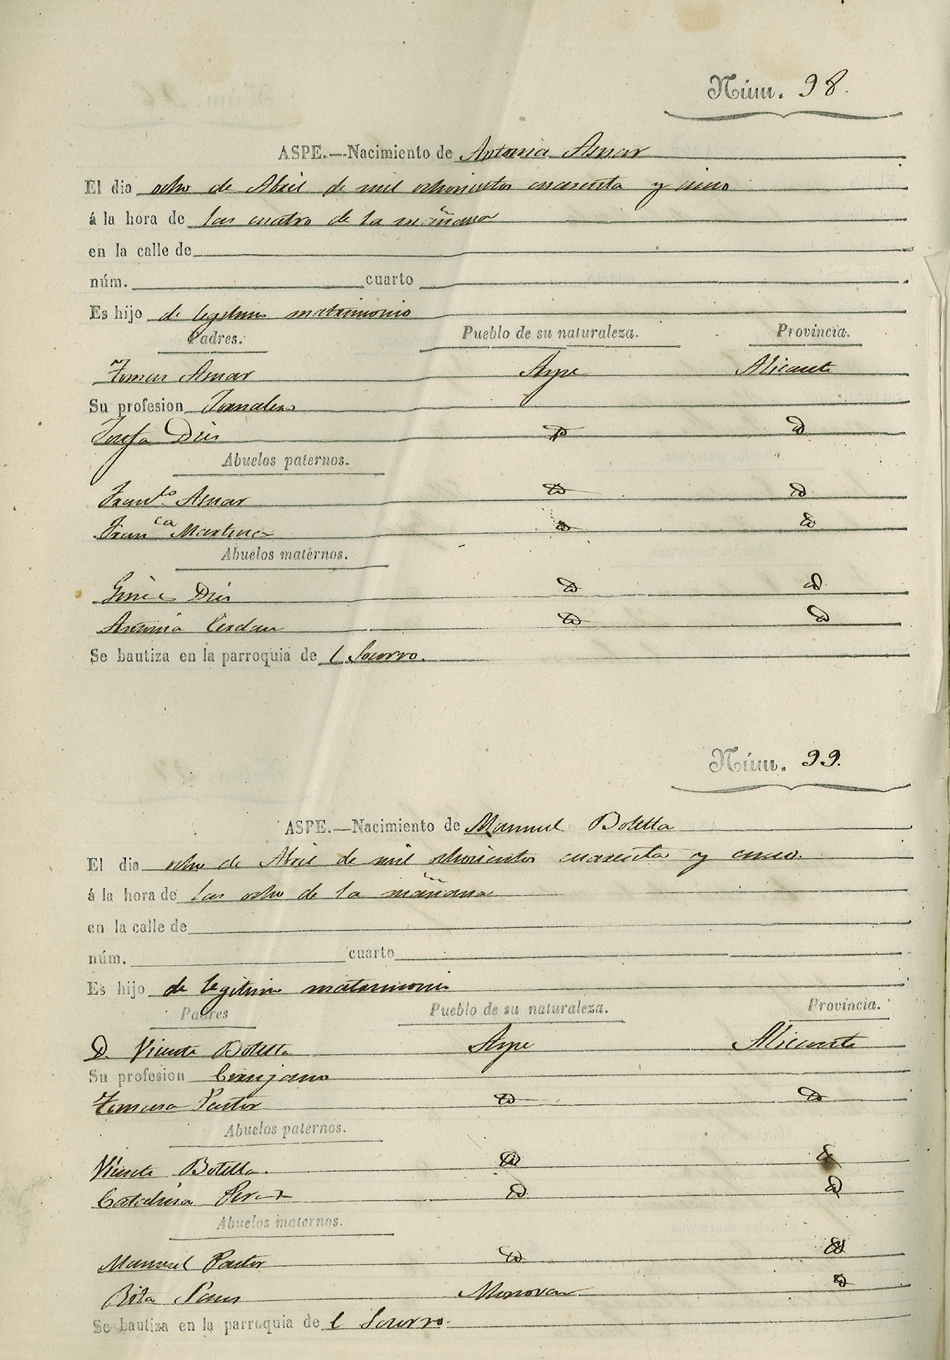 Núm. 98.
ASPE.—Nacimiento de Antonia Aznar
El dia ocho de Abril de mil ochocientos cuarenta y cinco
á la hora de las cuatro de la mañana
en la calle de
núm. cuarto
Es hijo de legitimo matrimonio
Padres. Pueblo de su naturaleza. Provincia.
Tomas Aznar Aspe Alicante
Su profesion Jornalero
Josefa Dies
Abuelos paternos.
Franco Aznar
Franca Martinez
Abuelos maternos.
Ginés Dies
Antonia Cerdan
Se bautiza en la parroquia de l Socorro.
Núm. 99.
ASPE.—Nacimiento de Manuel Botella
El dia ocho de Abril de mil ochocientos cuarenta y cinco.
á la hora de las ocho de la mañana
en la calle de
núm. cuarto
Es hijo de legitimo matrimonio
Padres Pueblo de su naturaleza. Provincia.
D. Vicente Botella Aspe Alicante
Su profesion Cirujano
Tomasa Pastor
Abuelos paternos.
Vicente Botella.
Catalina Perez
Abuelos maternos.
Manuel Pastor
Rita Monovar
Se bautiza en la parroquia de l Socorro.